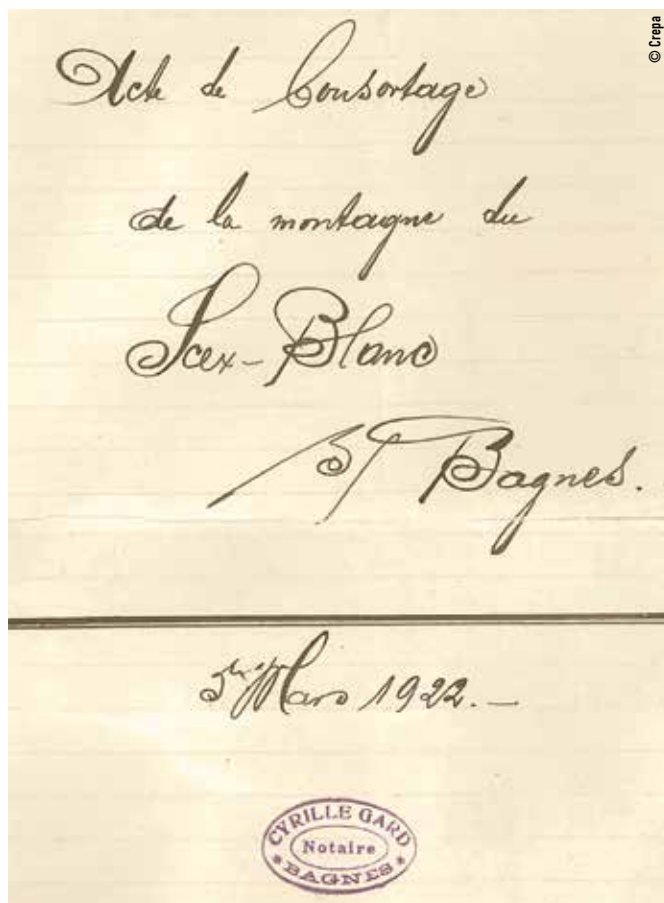 © Crepa
Acte de Consortage
de la montagne du
Scex-Blanc
Bagnes.
Mars 1922.-
CYRILLE GARD
Notaire
* BAGNES *